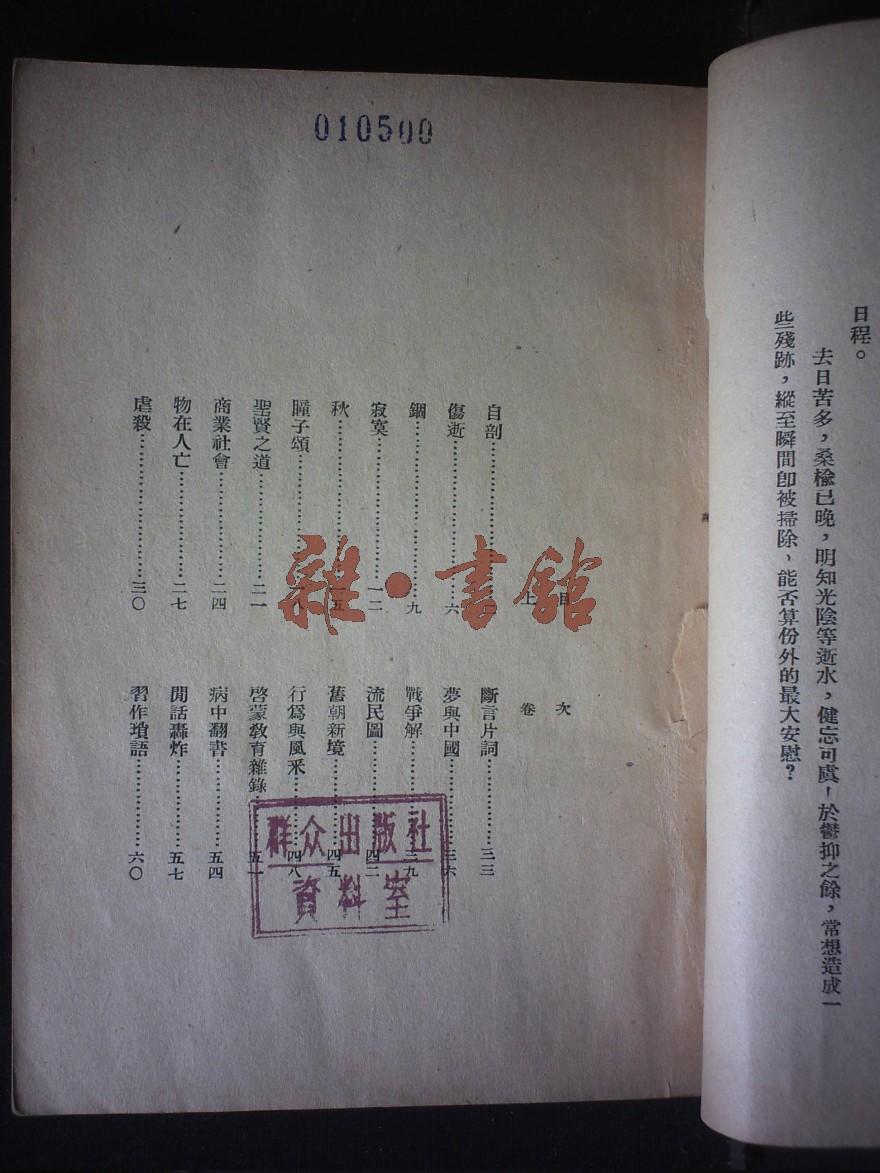 日程。
去日苦多，桑榆已晚，明知光陰等逝水，健忘可虞！於鬱抑之餘，常想造成一
些殘跡，縱至瞬間卽被掃除，能否算份外的最大安慰？
010500
目次
上卷
自剖……………
傷逝……………六
錮……………九
寂寞……………一二
秋……………一五
瞳子頌……………一八
聖賢之道……………二一
商業社會……………二四
物在人亡……………二七
虐殺……………三〇
斷言片詞……………三三
夢與中國……………三六
戰爭解……………三九
流民圖……………四二
舊朝新境……………四五
行爲與風釆……………四八
啓蒙敎育雜錄……………五一
病中翻書……………五四
閒話轟炸……………五七
習作瑣語……………六〇
群众出版社
資料室
雜·書館